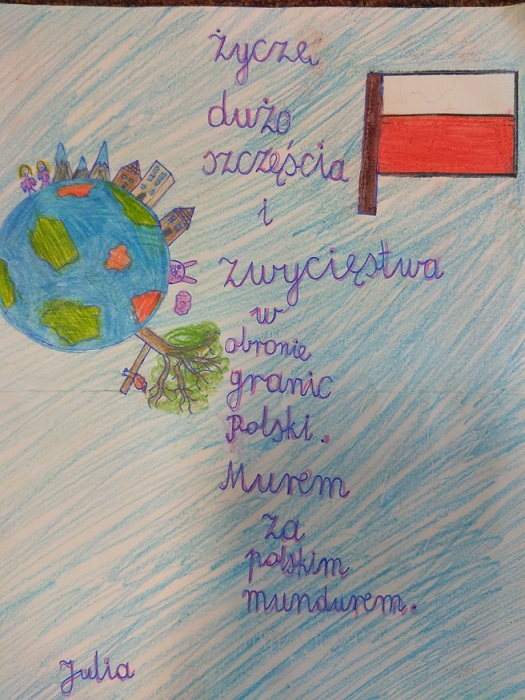 życzę
dużo
szczęścia
i
zwycięstwa
w
obronie
granic
Polski.
Murem
za
polskim
mundurem.
Julia